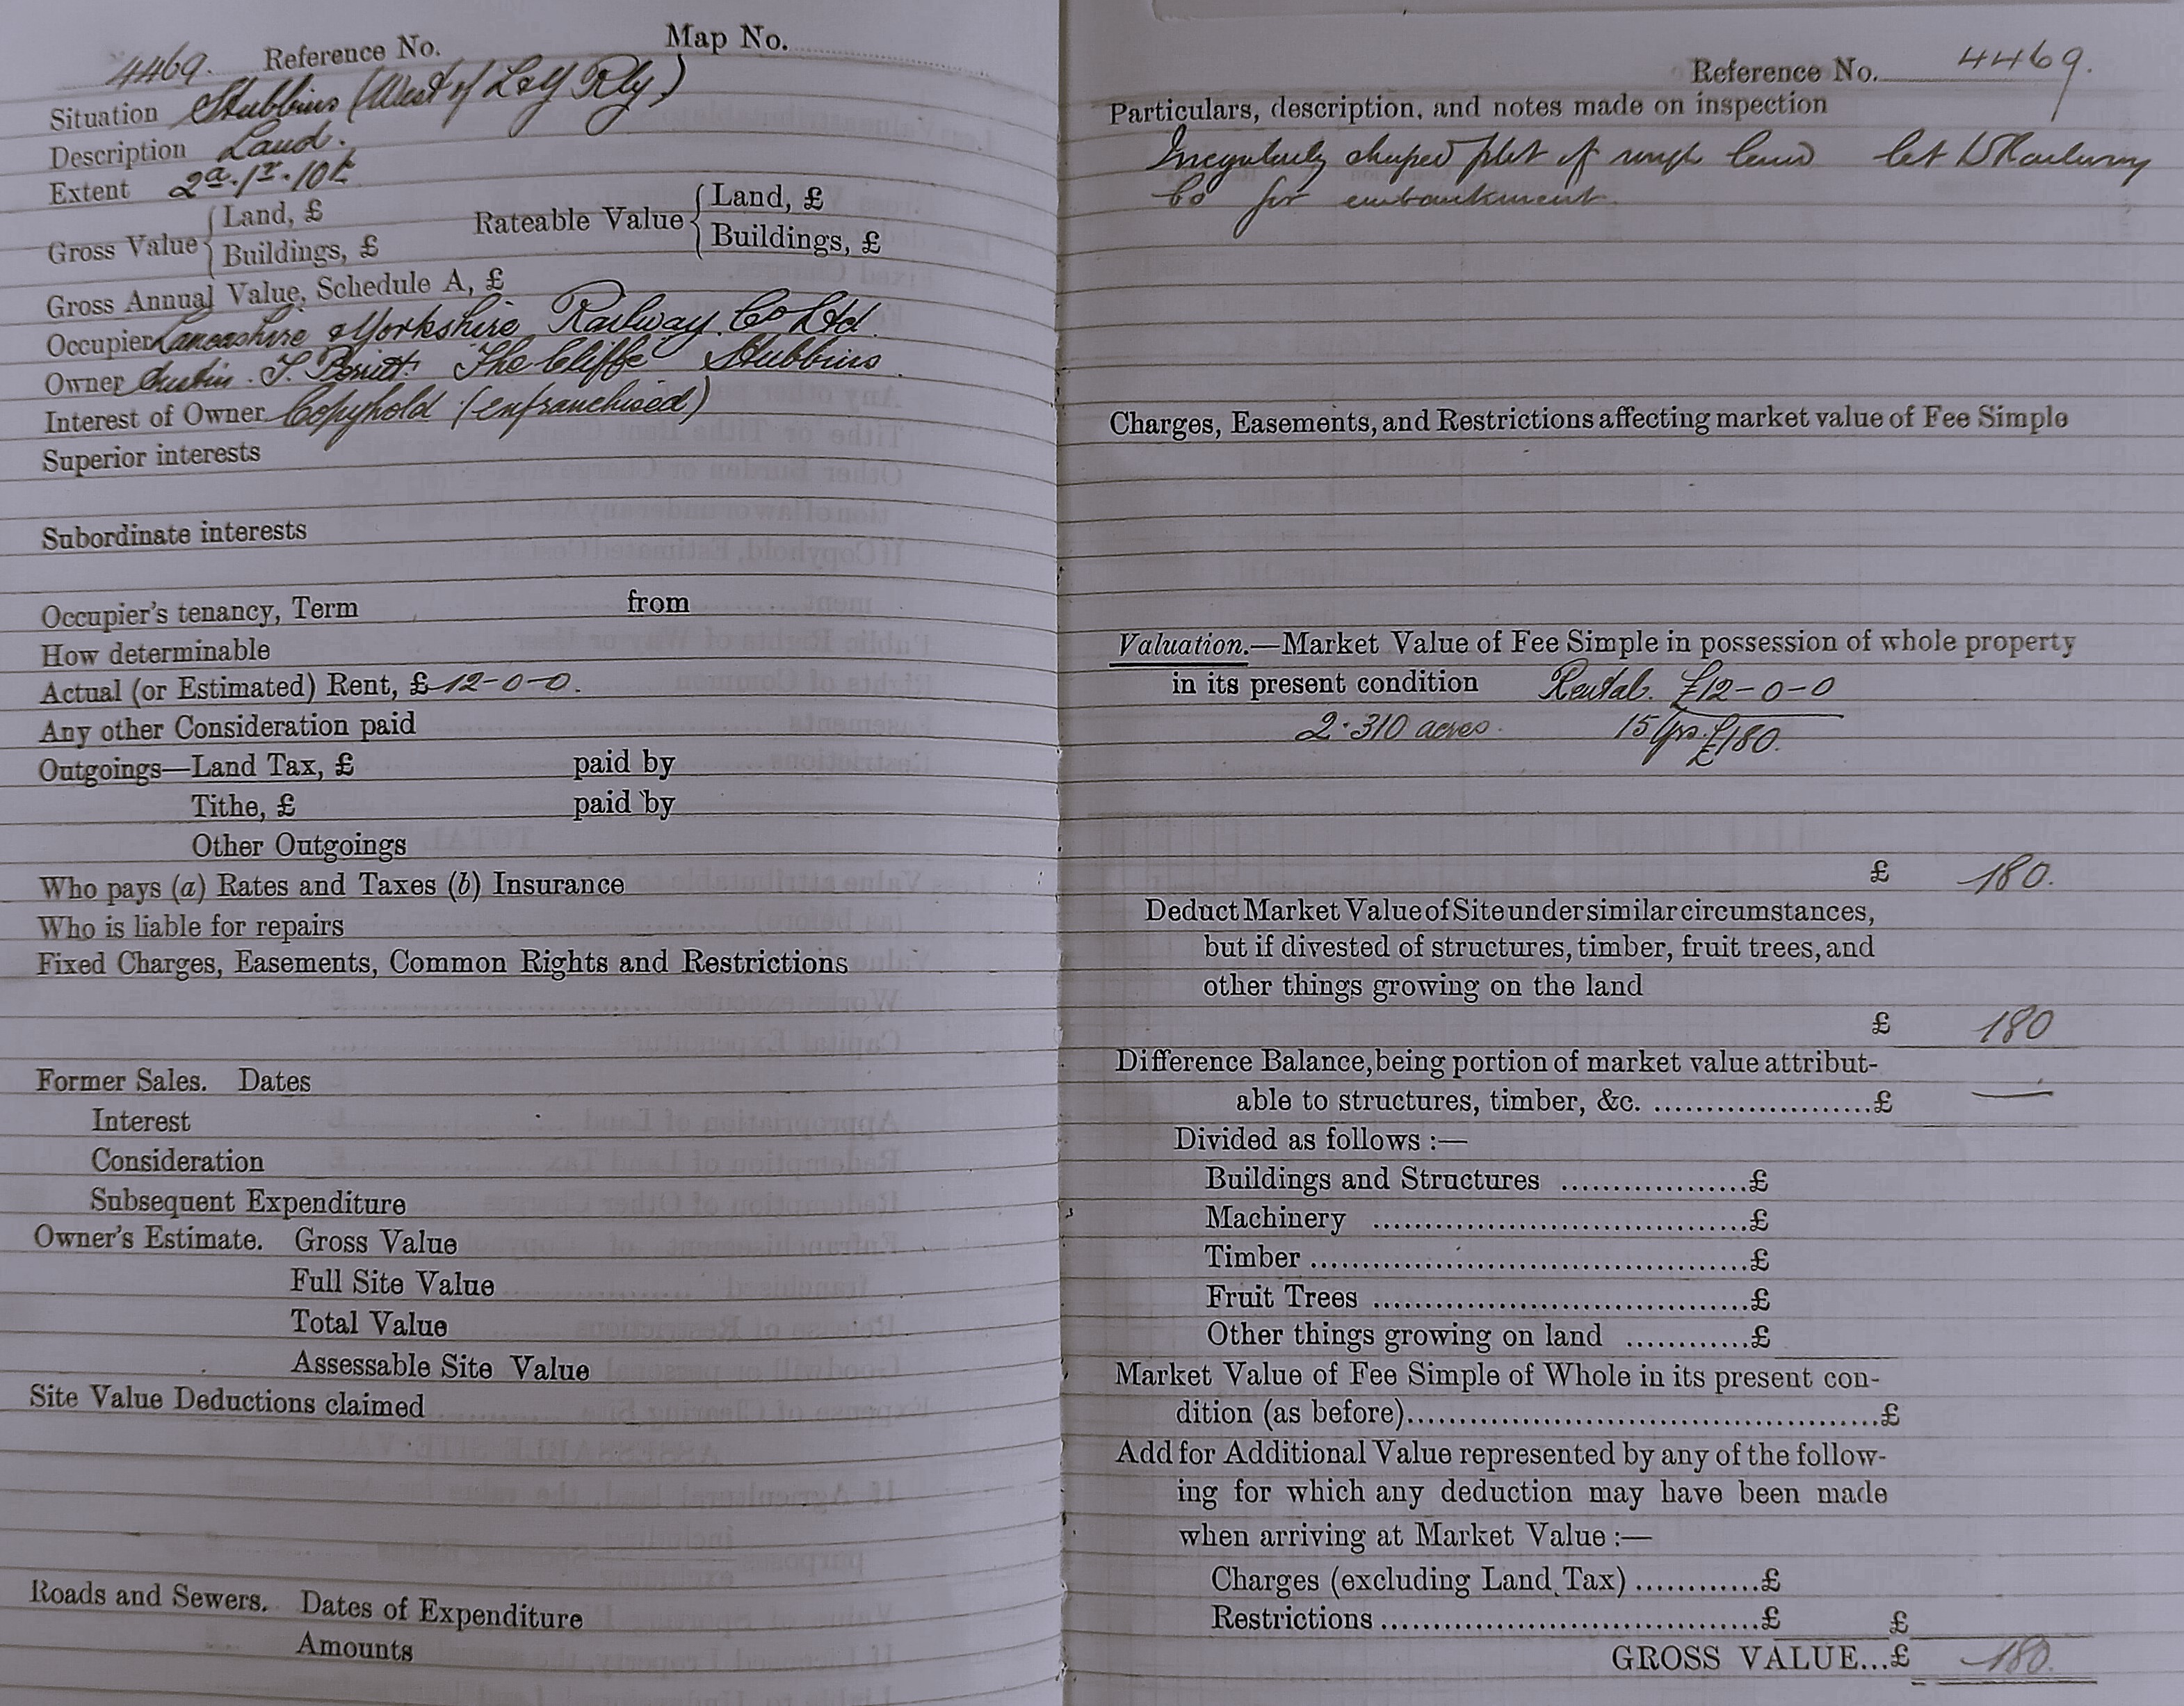 4469. Reference No. Map No.
Situation Stubbins (West of L & Y Rly)
Description Land.
Extent 2a. 1r. 10p.
Gross Value { Land, £
Buildings, £
Rateable Value { Land, £
Buildings, £
Gross Annual Value, Schedule A, £
Occupier Lancashire & Yorkshire Railway Co Ltd.
Owner Austin T. Porritt The Cliffe Stubbins.
Interest of Owner Copyhold (enfranchised)
Superior interests
Subordinate interests
Occupier's tenancy, Term from
How determinable
Actual (or Estimated) Rent, £ 12-0-0.
Any other Consideration paid
Outgoings—Land Tax, £ paid by
Tithe, £ paid by
Other Outgoings
Who pays (a) Rates and Taxes (b) Insurance
Who is liable for repairs
Fixed Charges, Easements, Common Rights and Restrictions
Former Sales. Dates
Interest
Consideration
Subsequent Expenditure
Owner's Estimate. Gross Value
Full Site Value
Total Value
Assessable Site Value
Site Value Deductions claimed
Roads and Sewers. Dates of Expenditure
Amounts
Reference No. 4469.
Particulars, description, and notes made on inspection
Irregularly shaped plot of rough land let to Railway
Co for embankment.
Charges, Easements, and Restrictions affecting market value of Fee Simple
Valuation.—Market Value of Fee Simple in possession of whole property
in its present condition Rental. £12-0-0
2.310 acres. 15 Yrs. £180.
£ 180.
Deduct Market Value of Site under similar circumstances,
but if divested of structures, timber, fruit trees, and
other things growing on the land
£ 180
Difference Balance, being portion of market value attribut-
able to structures, timber, &c. ......................£ —
Divided as follows :—
Buildings and Structures ...................£
Machinery .....................................£
Timber ...........................................£
Fruit Trees .....................................£
Other things growing on land ............£
Market Value of Fee Simple of Whole in its present con-
dition (as before)...............................................£
Add for Additional Value represented by any of the follow-
ing for which any deduction may have been made
when arriving at Market Value :—
Charges (excluding Land Tax) ............£
Restrictions ......................................£ £
GROSS VALUE...£ 180.